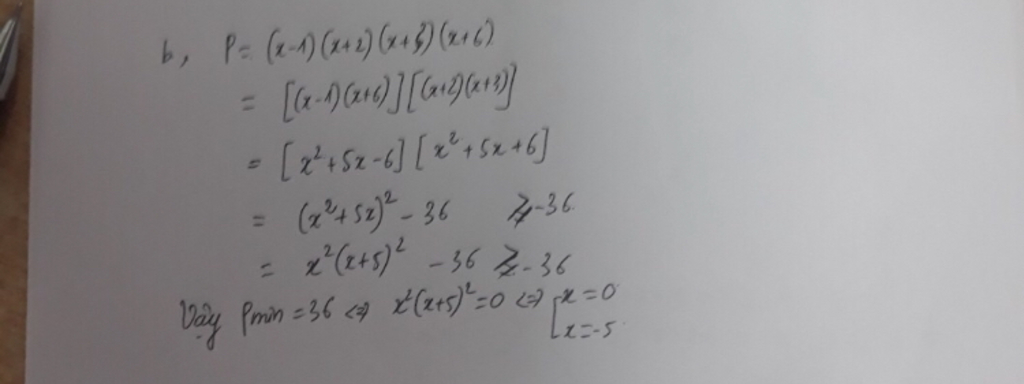 b, P = (x-1)(x+2)(x+3)(x+6)
= [(x-1)(x+6)][(x+2)(x+3)]
= [x²+5x-6][x²+5x+6]
= (x²+5x)² - 36 ≥ -36
= x²(x+5)² - 36 ≥ -36
Vậy Pmin = 36 <=> x²(x+5)² = 0 <=> [x = 0
x = -5